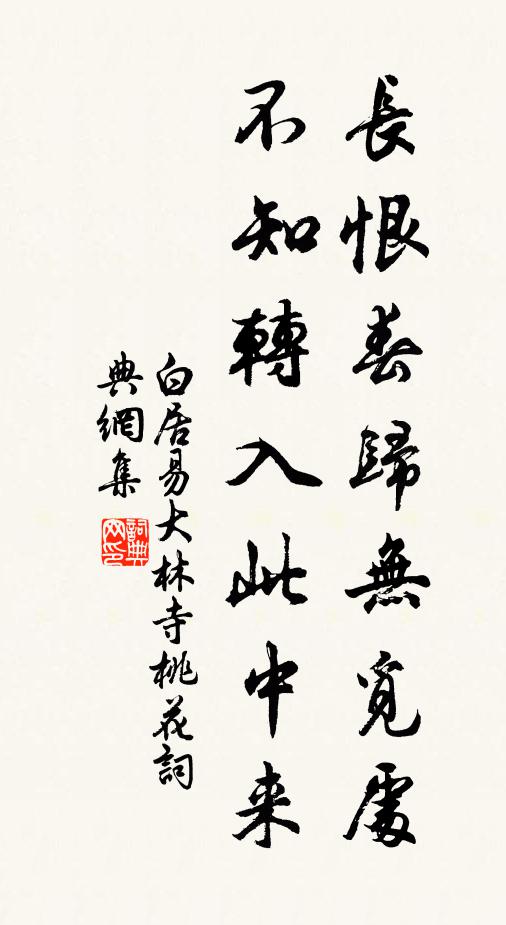 長恨春歸無覓處
不知轉入此中来
白居易大林寺桃花詞
典網集
詞典网印